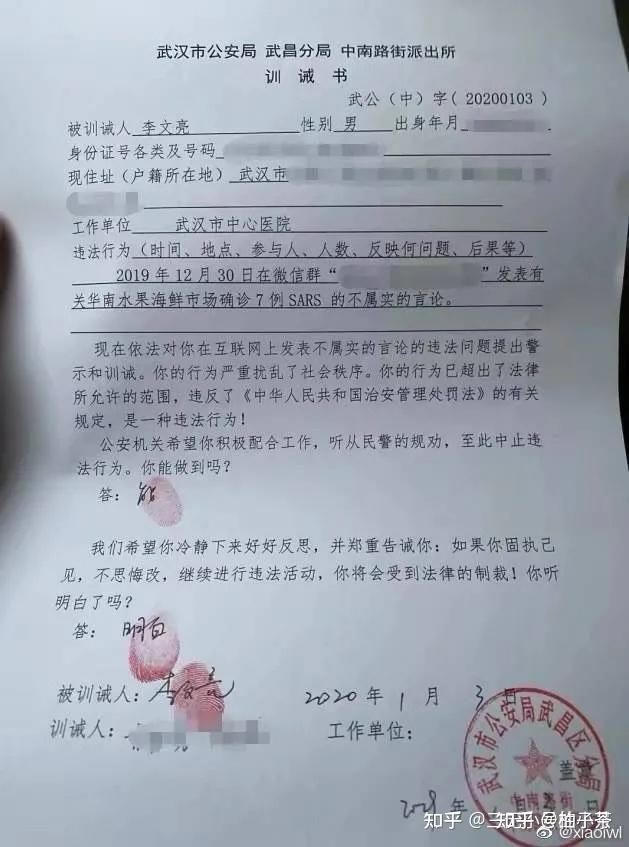 武汉市公安局 武昌分局 中南路街派出所
训 诫 书
武公（中）字（20200103）
被训诫人 李文亮 性别 男 出身年月
身份证号各类及号码
现住址（户籍所在地） 武汉市
工作单位 武汉市中心医院
违法行为（时间、地点、参与人、人数、反映何问题、后果等）
2019 年 12 月 30 日在微信群“ ”发表有
关华南水果海鲜市场确诊 7 例 SARS 的不属实的言论。
现在依法对你在互联网上发表不属实的言论的违法问题提出警
示和训诫。你的行为严重扰乱了社会秩序。你的行为已超出了法律
所允许的范围，违反了《中华人民共和国治安管理处罚法》的有关
规定，是一种违法行为！
公安机关希望你积极配合工作，听从民警的规劝，至此中止违
法行为。你能做到吗？
答：能
我们希望你冷静下来好好反思，并郑重告诫你：如果你固执己
见，不思悔改，继续进行违法活动，你将会受到法律的制裁！你听
明白了吗？
答：明白
被训诫人：李文亮 2020 年 1 月 3 日
训诫人： 工作单位：
武汉市公安局武昌区分局
盖章
中南路街
年 日
知乎 @柚子茶
@xiaoiwl